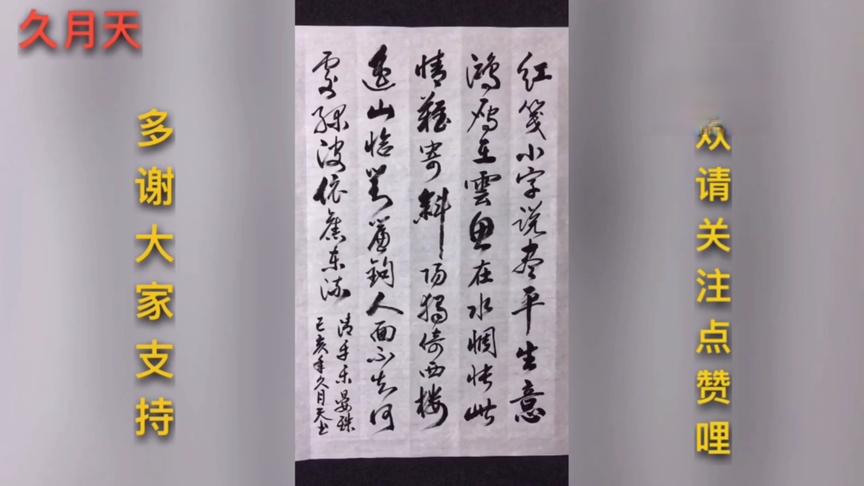 久月天
多谢大家支持
欢请关注点赞哩
红笺小字说尽平生意
鸿雁在雲魚在水惆怅此
情難寄斜阳獨倚西楼
遥山恰对簾鉤人面不知何
處绿波依舊東流
清平乐晏殊
己亥年久月天书